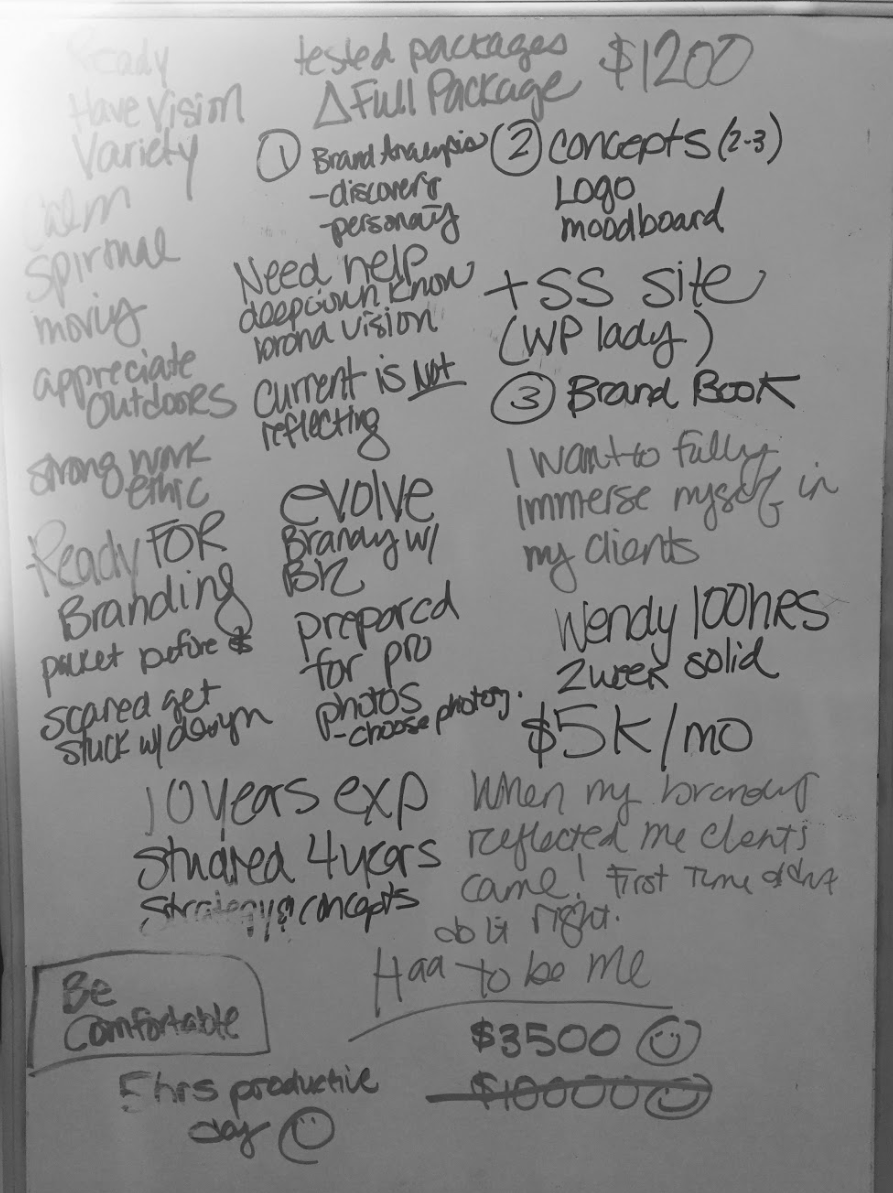 Ready
Have Vision
Variety
Calm
Spiritual
moving
appreciate
outdoors
strong work
ethic
Ready FOR
Branding
packet before $
scared get
stuck w/ design
tested packages
$1200
Δ Full Package
① Brand Analysis
-discovery
-personality
Need help
deepdown know
brand vision
Current is Not
reflecting
evolve
Branding w/
Biz
prepared
for pro
photos
-choose photog.
② Concepts (2-3)
Logo
moodboard
+ SS site
(WP lady)
③ Brand Book
I want to fully
immerse myself in
my clients
Wendy 100hrs
2week solid
$5K/mo
10 years exp
Studied 4 years
Strategy & concepts
When my branding
reflected me clients
came! First Time didnt
do it right.
Had to be me
Be
Comfortable
5hrs productive
day ☺
$3500 ☺
$10000 ☺